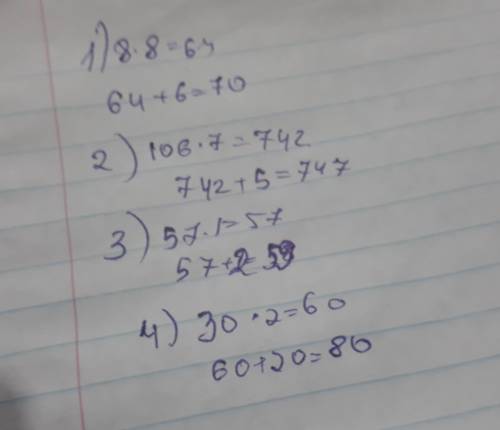 1) 8·8=64
64+6=70
2) 106·7=742
742+5=747
3) 57·1=57
57+2=59
4) 30·2=60
60+20=80